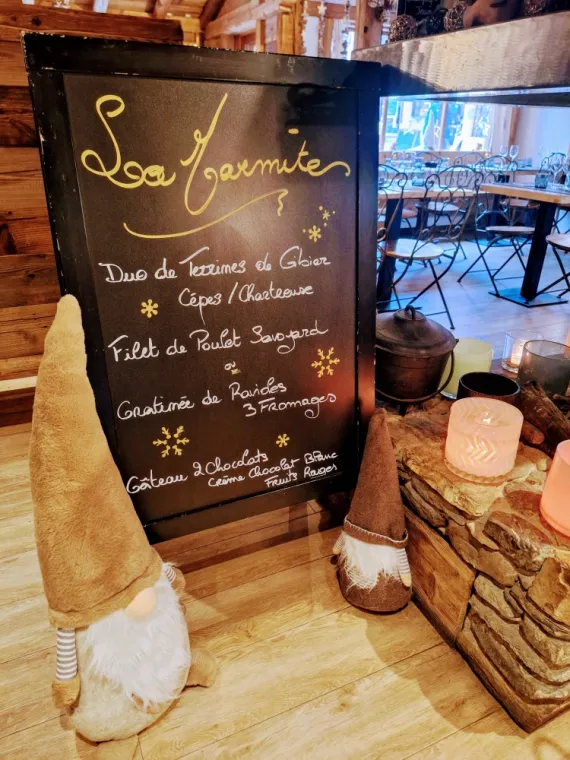 La Marmite
Duo de Terrines de Gibier
Cèpes / Chartreuse
Filet de Poulet Savoyard
ou
Gratinée de Ravioles
3 Fromages
Gâteau 2 Chocolats
Crème Chocolat Blanc
Fruits Rouges